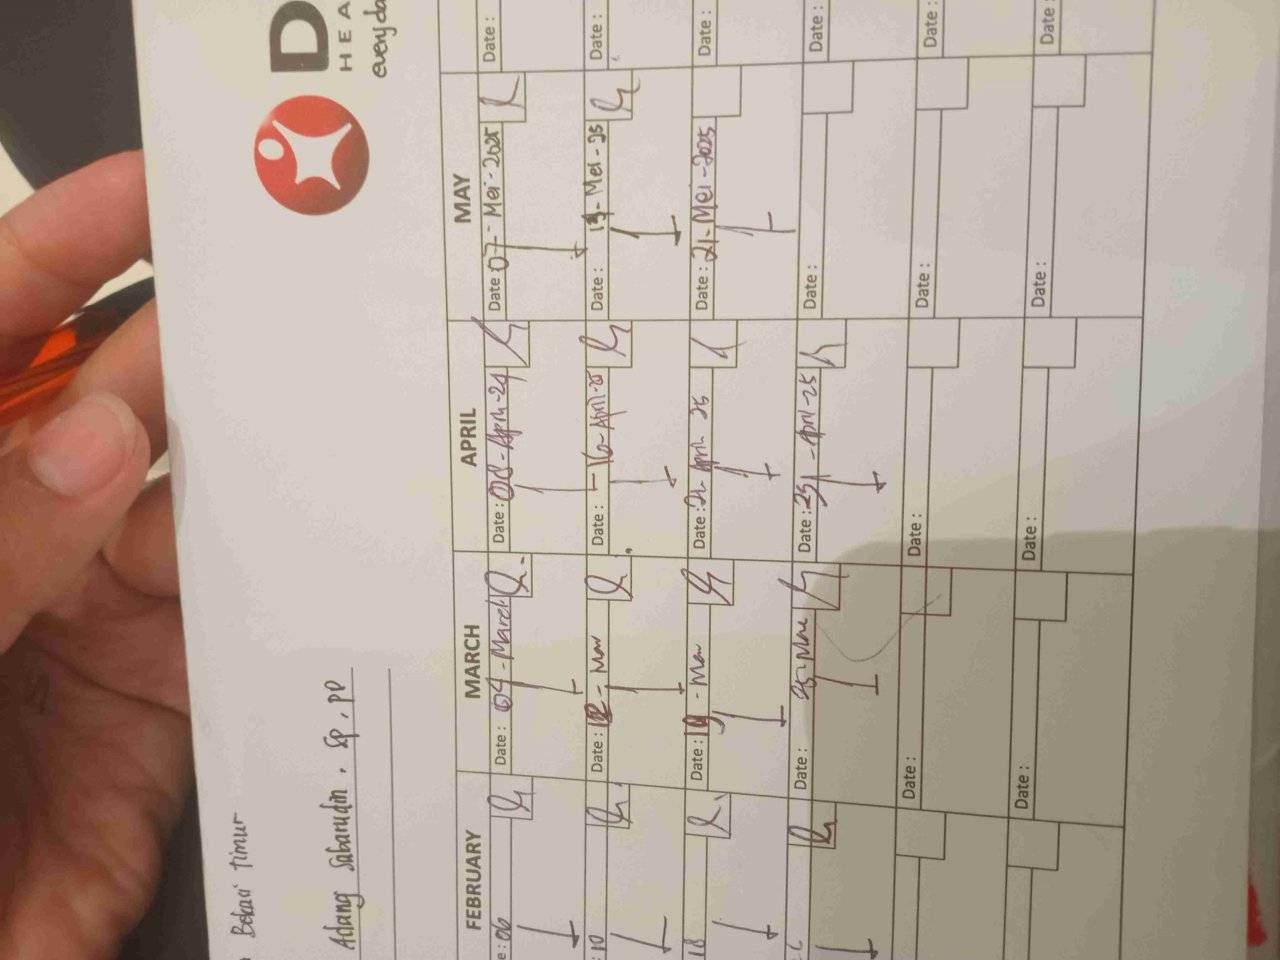 D
HEA
everyda
Bekasi Timur
Adang Sabarudin, Sp.PD
FEBRUARY MARCH APRIL MAY
e: 06 Date: 04-March Date: 08-April-24 Date: 07-Mei-2025 Date:
: 10 Date: 12-Mar Date: 16-April-25 Date: 13-Mei-25 Date:
18 Date: 19-Mar Date: 21-April-25 Date: 21-Mei-2025 Date:
Date: Date: Date: Date:
Date: Date: Date: Date:
Date: Date: Date: Date: